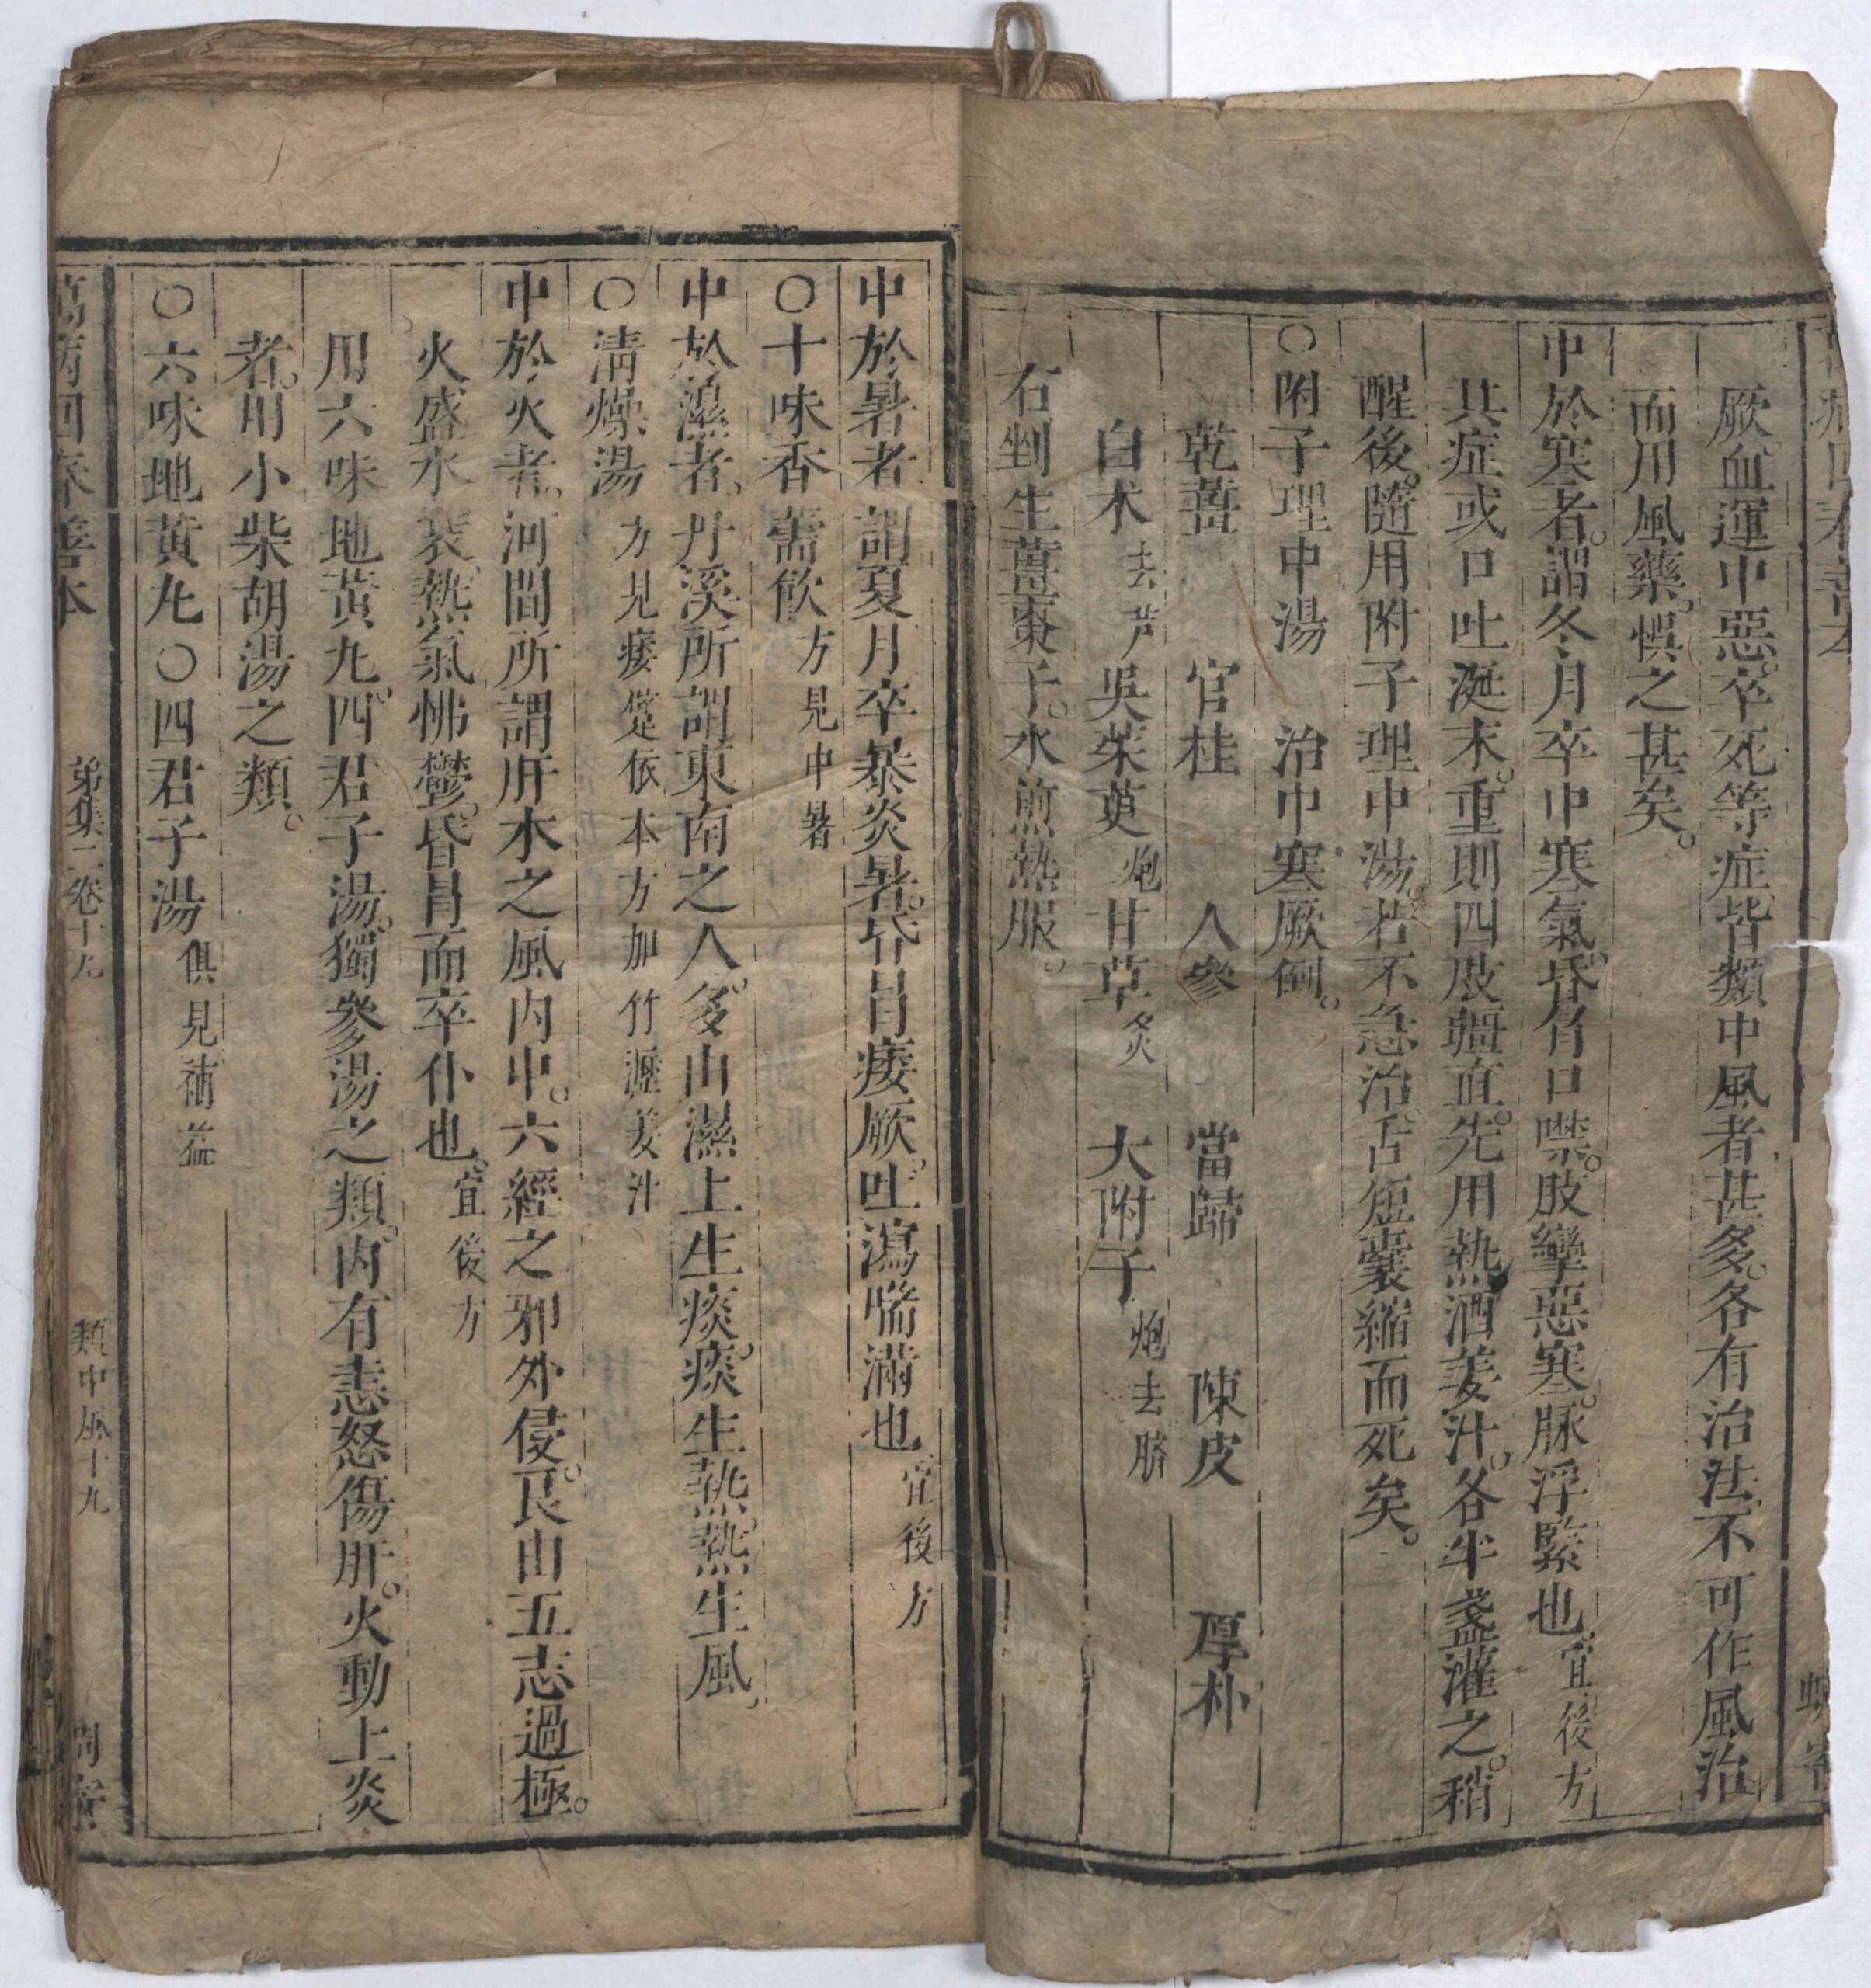 厥血運中惡卒死等症皆類中風者甚多各有治法不可作風治
而用風藥悞之甚矣
中於寒者謂冬月卒中寒氣昏冐口噤肢攣惡寒脉浮緊也宜後方
其症或口吐涎末重則四肢疆直先用熱酒姜汁各半盞灌之稍
醒後隨用附子理中湯若不急治舌短囊縮而死矣
○附子理中湯 治中寒厥倒
乾薑 官桂 人參 當歸 陳皮 厚朴
白术去芦 吳茱萸炮 甘草炙 大附子炮去臍
右剉生薑棗子水煎熱服
中於暑者謂夏月卒暴炎暑昏冐痿厥吐瀉喘滿也宜後方
○十味香薷飲方見中暑
中於濕者丹溪所謂東南之人多由濕土生痰痰生熱熱生風
○清燥湯方見痿躄依本方加竹瀝姜汁
中於火者河間所謂肝木之風内中六經之邪外侵良由五志過極
火盛水衰熱氣怫鬱昏冐而卒仆也宜後方
用六味地黃九四君子湯獨參湯之類内有恚怒傷肝火動上炎
者用小柴胡湯之類
○六味地黃九○四君子湯俱見補益
萬病回春善本 弟集二卷十九 類中風十九